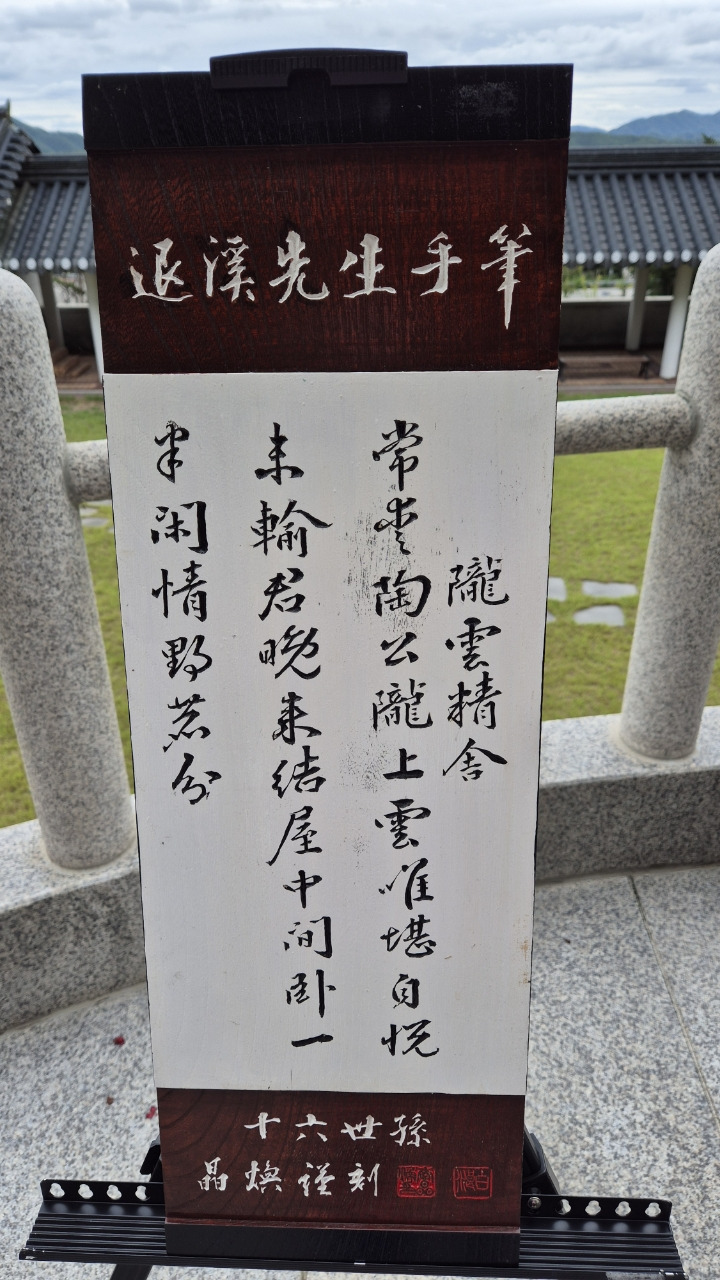 退溪先生手筆
隴雲精舍
常愛陶公隴上雲唯堪自悅
未輸君晚來結屋中間臥一
半閑情野鹿分
十六世孫
晶煥謹刻